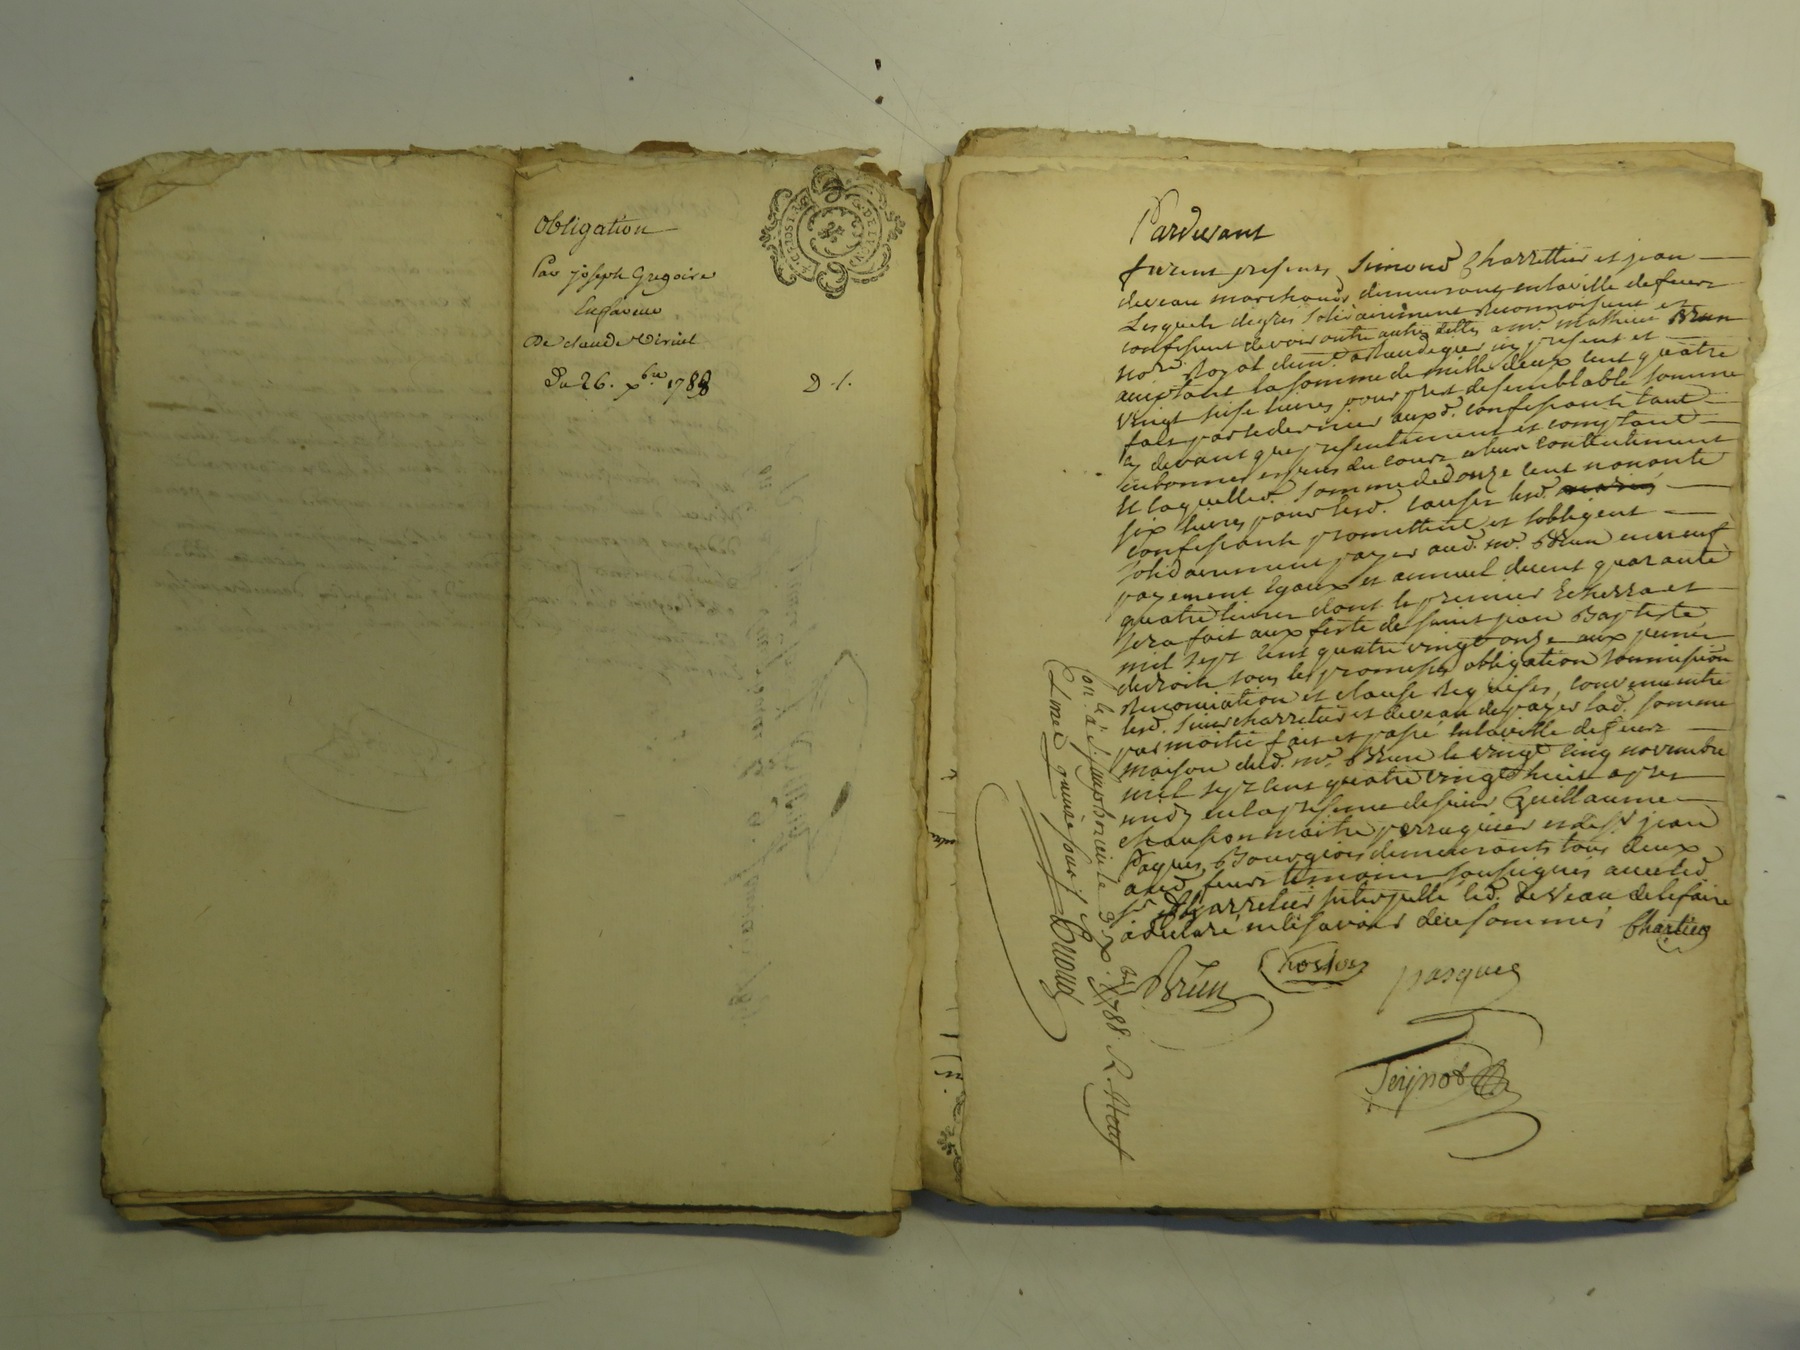 Obligation
Par joseph Gregoire
En faveur
De claude Viriul
Du 26. xbre 1788
D. 1.
Pardevant
furent presents Simond Charrettier et jean
deveau marchands demeurant en la ville de feurs
Lesquels de gres solidairement reconnoissent et
confessent devoir outre autres dettes a me. mathieu Brun
nore. Royal dud. present et
acceptant la somme de mille deux cent quatre
vingt seise livres pour prest de semblable somme
fait par ce dernier auxd. confessants tant
cy devant que presentement et comptant
en bonnes especes du cours a leur contentement
et laquelle d. somme de douze cent nonante
six livres pour lesd. causes lesd.
confessants promettent et s'obligent
solidairement payer aud. me. Brun en neuf
payement egaux et annuel de cent quarante
quatre livres dont le premier Echerra et
sera fait aux feste de saint jean Baptiste
mil sept cent quatre vingt onze aux peines
de droit sous les promesses obligation soumission
Renonciation et clause Requises, convenu entre
lesd. sieur charretier et deveau de payer lad. somme
par moitié fait et passé en la ville de feurs
maison dud. me. Brun le vingt cinq novembre
mil sept cent quatre vingt huit apres
midy en la presence de sieur Guillaume
chausson maitre perruquier et de sr. jean
Paques Bourgeois demeurants tous deux
aud. feurs temoins soussignés avec led.
sr. Charretier interpellé led. deveau de le faire
a declaré ne le savoir de ce sommés Chartier
Brun
pasques
Con. lé a St. simphorien le 3. xbre 1788. R. Neuf
Livre quinze sous